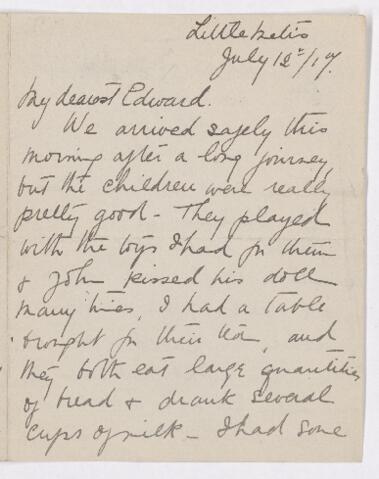 Little Metis
July 12th/17.
My dearest Edward.
We arrived safely this
morning after a long journey
but the children were really
pretty good - They played
with the toys I had for them
& John kissed his doll
many times, I had a table
brought for their tea, and
they both eat large quantities
of bread & drank several
cups of milk - I had some